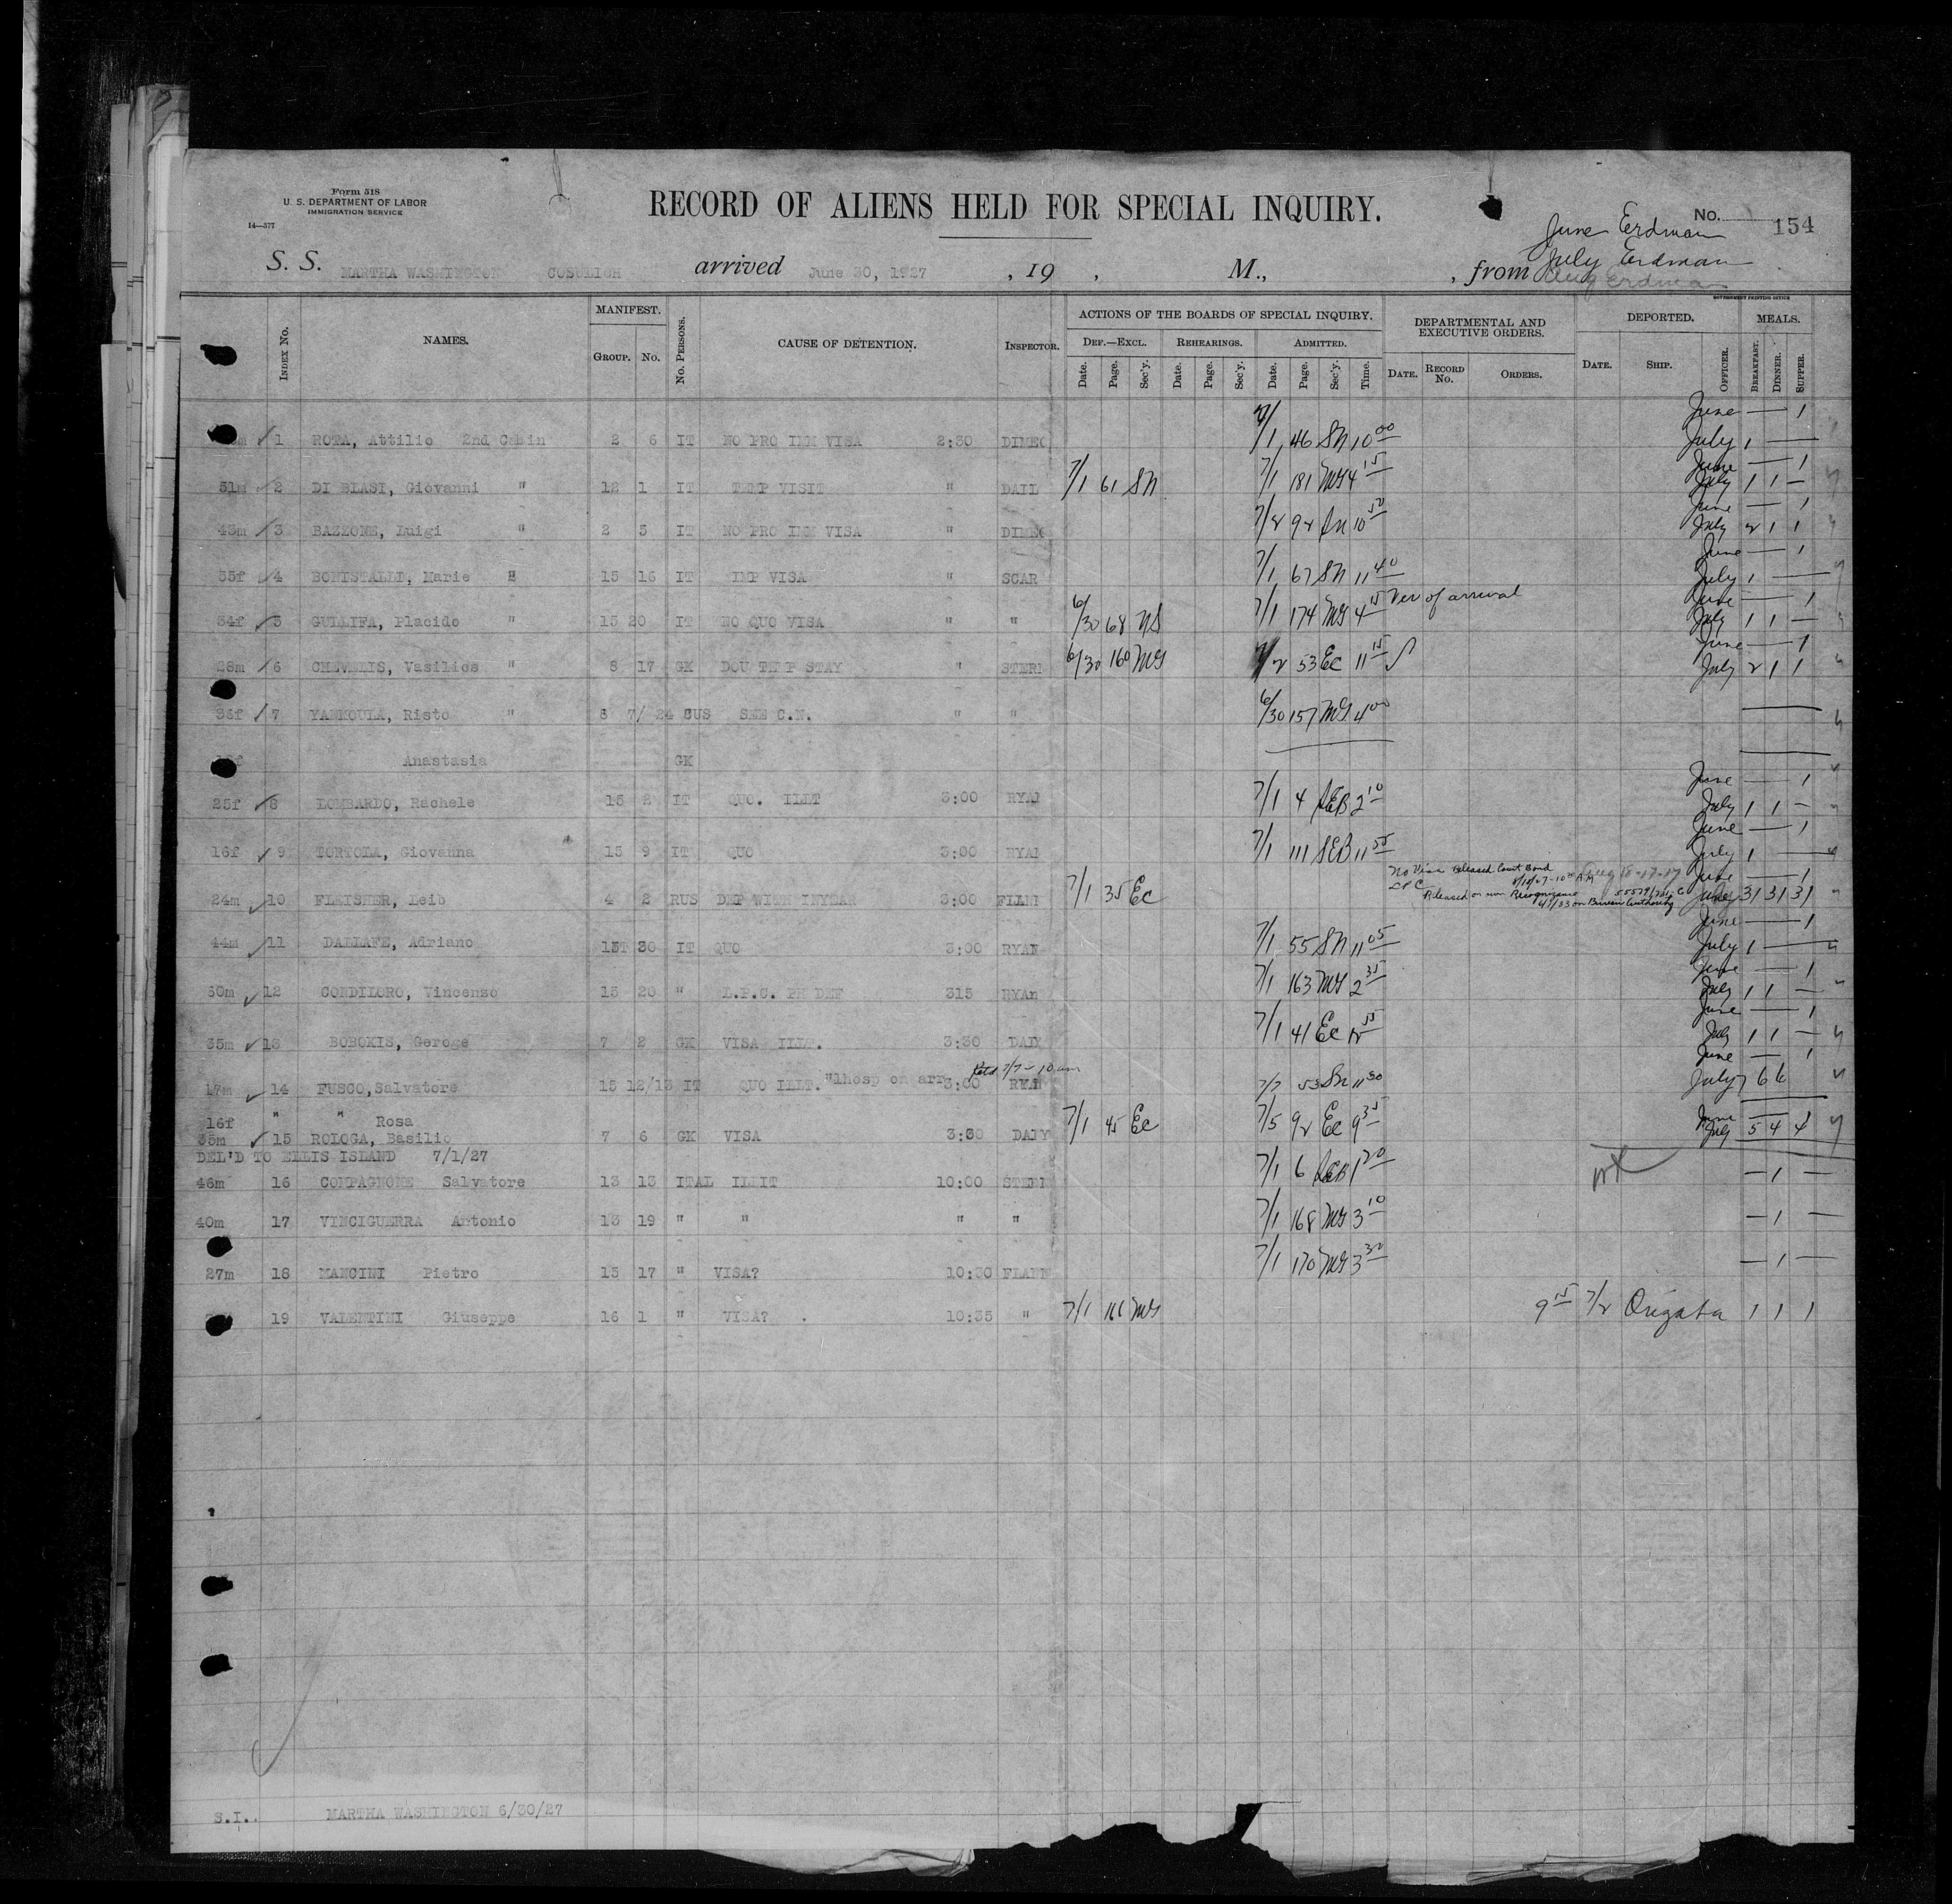 Form 518
U. S. DEPARTMENT OF LABOR
IMMIGRATION SERVICE
14—377
RECORD OF ALIENS HELD FOR SPECIAL INQUIRY.
No. 154
June Erdman
July Erdman
Aug Erdman
S. S. MARTHA WASHINGTON COSULICH arrived June 30, 1927 , 19 , M., , from
GOVERNMENT PRINTING OFFICE
INDEX No. NAMES. MANIFEST. GROUP. No. No. PERSONS. CAUSE OF DETENTION. INSPECTOR. ACTIONS OF THE BOARDS OF SPECIAL INQUIRY. DEPARTMENTAL AND EXECUTIVE ORDERS. DEPORTED. MEALS.
DEF.—EXCL. REHEARINGS. ADMITTED.
Date. Page. Sec'y. Date. Page. Sec'y. Date. Page. Sec'y. Time. DATE. RECORD No. ORDERS. DATE. SHIP. OFFICER. BREAKFAST. DINNER. SUPPER.
June — 1
1 ROTA, Attilio 2nd Cabin 2 6 IT NO PRO IMM VISA 2:30 DIMEO 7/1 46 SN 10 00 July 1 —
June — 1
51m 2 DI BLASI, Giovanni " 12 1 IT TEMP VISIT " DAIL 7/1 61 SN 7/1 181 MG 4 15 July 1 1 —
June — 1
43m 3 BAZZONE, Luigi " 2 5 IT NO PRO IMM VISA " DIMEO 7/2 92 SN 10 50 July 2 1 1
June — 1
35f 4 BONISTALLI, Marie " 15 16 IT IMP VISA " SCAR 7/1 67 SN 11 40 July 1 —
June — 1
34f 5 GULLIFA, Placido " 15 20 IT NO QUO VISA " " 6/30 68 NS 7/1 174 MG 4 15 Ver of arrival July 1 1 —
June — 1
28m 6 CHEVELIS, Vasilios " 8 17 GK DOU TEMP STAY " STERN 6/30 160 MG 7/2 53 EC 11 15 July 2 1 1
36f 7 YANKOULA, Risto " 8 7/ 24 CUS SEE C.N. " " 6/30 157 MG 4 00 —
Anastasia GK —
June — 1
25f 8 LOMBARDO, Rachele 15 2 IT QUO. ILLT 3:00 RYAN 7/1 4 SEB 2 10 July 1 1 —
June — 1
16f 9 TORTOLA, Giovanna 15 9 IT QUO 3:00 RYAN 7/1 111 SEB 11 55 July 1 —
No Visa Released Court Bond Aug 18-17-17 June — 1
L P C 8/18/27-10 AM
24m 10 FLEISHER, Leib 4 2 RUS 3:00 7/1 35 EC Released on own Recognizance July 31 31 31
4/1/33 on Bureau Authority
June — 1
44m 11 DALLAFE, Adriano 15T 30 IT QUO 3:00 RYAN 7/1 55 SN 11 05 July 1 —
June — 1
50m 12 CONDILORO, Vincenzo 15 20 " L.P.C. PH DEF 315 RYAn 7/1 163 MG 2 35 July 1 1 —
June — 1
35m 13 BOBOKIS, Geroge 7 2 GK VISA ILLT. 3:30 DALY 7/1 41 EC July 1 1 —
June — 1
17m 14 FUSCO,Salvatore 15 12/13 IT QUO ILLT. "1hosp on arr 3:00 RYAN 7/7 – 10 am 7/7 53 SN 11 30 July 7 6 6
16f " " Rosa
35m 15 ROLOGA, Basilio 7 6 GK VISA 3:30 DALY 7/1 45 EC 7/5 92 EC 9 35 June — 1 July 5 4 4
DEL'D TO ELLIS ISLAND 7/1/27
46m 16 COMPAGNONE Salvatore 13 13 ITAL ILLIT 10:00 STERN 7/1 6 SEB 1 20 — 1 —
40m 17 VINCIGUERRA Antonio 13 19 " " " " 7/1 168 MG 3 10 — 1 —
27m 18 MANCINI Pietro 15 17 " VISA? 10:30 FLANN 7/1 170 MG 3 30 — 1 —
19 VALENTINI Giuseppe 16 1 " VISA? 10:35 " 7/1 161 MG 9 15 7/2 Orizaba 1 1 1
S.I. MARTHA WASHINGTON 6/30/27